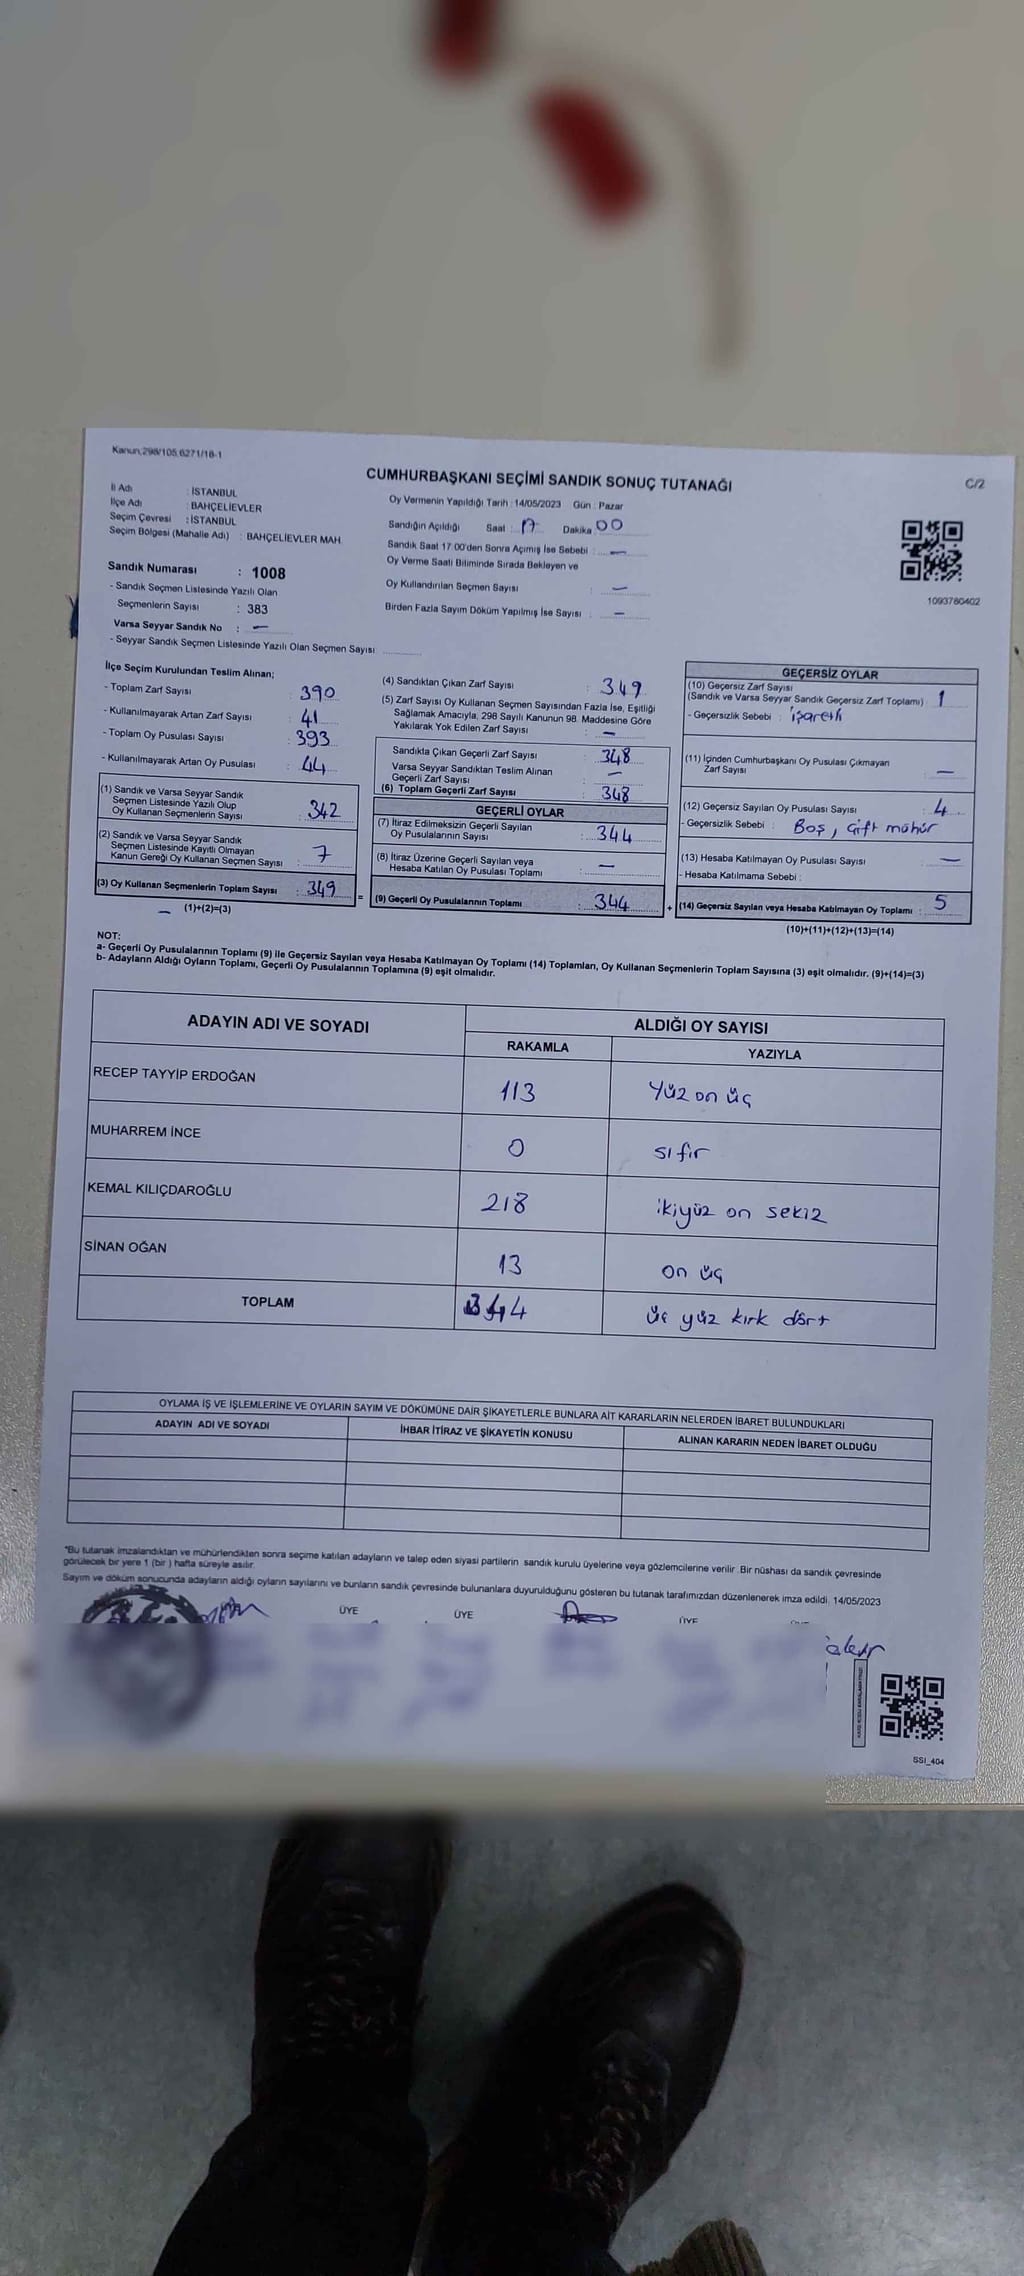 Kanun;298/105,6271/18-1
CUMHURBAŞKANI SEÇİMİ SANDIK SONUÇ TUTANAĞI
C/2
İl Adı : İSTANBUL
İlçe Adı : BAHÇELİEVLER
Seçim Çevresi : İSTANBUL
Seçim Bölgesi (Mahalle Adı) : BAHÇELİEVLER MAH.
Oy Vermenin Yapıldığı Tarih : 14/05/2023 Gün : Pazar
Sandığın Açıldığı Saat : 17 Dakika 00
Sandık Saat 17:00'den Sonra Açımış İse Sebebi : —
Oy Verme Saati Bitiminde Sırada Bekleyen ve
Oy Kullandırılan Seçmen Sayısı : —
Birden Fazla Sayım Döküm Yapılmış İse Sayısı : —
1093780402
Sandık Numarası : 1008
- Sandık Seçmen Listesinde Yazılı Olan
Seçmenlerin Sayısı : 383
Varsa Seyyar Sandık No : —
- Seyyar Sandık Seçmen Listesinde Yazılı Olan Seçmen Sayısı :
İlçe Seçim Kurulundan Teslim Alınan;
- Toplam Zarf Sayısı : 390
- Kullanılmayarak Artan Zarf Sayısı : 41
- Toplam Oy Pusulası Sayısı : 393
- Kullanılmayarak Artan Oy Pusulası : 44
(1) Sandık ve Varsa Seyyar Sandık
Seçmen Listesinde Yazılı Olup
Oy Kullanan Seçmenlerin Sayısı : 342
(2) Sandık ve Varsa Seyyar Sandık
Seçmen Listesinde Kayıtlı Olmayan
Kanun Gereği Oy Kullanan Seçmen Sayısı : 7
(3) Oy Kullanan Seçmenlerin Toplam Sayısı : 349
— (1)+(2)=(3)
(4) Sandıktan Çıkan Zarf Sayısı : 349
(5) Zarf Sayısı Oy Kullanan Seçmen Sayısından Fazla İse, Eşitliği
Sağlamak Amacıyla, 298 Sayılı Kanunun 98. Maddesine Göre
Yakılarak Yok Edilen Zarf Sayısı : —
Sandıkta Çıkan Geçerli Zarf Sayısı : 348
Varsa Seyyar Sandıktan Teslim Alınan
Geçerli Zarf Sayısı : —
(6) Toplam Geçerli Zarf Sayısı : 348
GEÇERLİ OYLAR
(7) İtiraz Edilmeksizin Geçerli Sayılan
Oy Pusulalarının Sayısı : 344
(8) İtiraz Üzerine Geçerli Sayılan veya
Hesaba Katılan Oy Pusulası Toplamı : —
= (9) Geçerli Oy Pusulalarının Toplamı : 344
GEÇERSİZ OYLAR
(10) Geçersiz Zarf Sayısı
(Sandık ve Varsa Seyyar Sandık Geçersiz Zarf Toplamı) : 1
- Geçersizlik Sebebi : işaretli
(11) İçinden Cumhurbaşkanı Oy Pusulası Çıkmayan
Zarf Sayısı : —
(12) Geçersiz Sayılan Oy Pusulası Sayısı : 4
- Geçersizlik Sebebi : Boş, Çift mühür
(13) Hesaba Katılmayan Oy Pusulası Sayısı : —
- Hesaba Katılmama Sebebi :
+ (14) Geçersiz Sayılan veya Hesaba Katılmayan Oy Toplamı : 5
(10)+(11)+(12)+(13)=(14)
NOT:
a- Geçerli Oy Pusulalarının Toplamı (9) ile Geçersiz Sayılan veya Hesaba Katılmayan Oy Toplamı (14) Toplamları, Oy Kullanan Seçmenlerin Toplam Sayısına (3) eşit olmalıdır. (9)+(14)=(3)
b- Adayların Aldığı Oyların Toplamı, Geçerli Oy Pusulalarının Toplamına (9) eşit olmalıdır.
ADAYIN ADI VE SOYADI
ALDIĞI OY SAYISI
RAKAMLA YAZIYLA
RECEP TAYYİP ERDOĞAN 113 Yüz on üç
MUHARREM İNCE 0 sıfır
KEMAL KILIÇDAROĞLU 218 ikiyüz on sekiz
SİNAN OĞAN 13 on üç
TOPLAM 344 üç yüz kırk dört
OYLAMA İŞ VE İŞLEMLERİNE VE OYLARIN SAYIM VE DÖKÜMÜNE DAİR ŞİKAYETLERLE BUNLARA AİT KARARLARIN NELERDEN İBARET BULUNDUKLARI
ADAYIN ADI VE SOYADI
İHBAR İTİRAZ VE ŞİKAYETİN KONUSU
ALINAN KARARIN NEDEN İBARET OLDUĞU
*Bu tutanak imzalandıktan ve mühürlendikten sonra seçime katılan adayların ve talep eden siyasi partilerin sandık kurulu üyelerine veya gözlemcilerine verilir. Bir nüshası da sandık çevresinde
görülecek bir yere 1 (bir) hafta süreyle asılır.
Sayım ve döküm sonucunda adayların aldığı oyların sayılarını ve bunların sandık çevresinde bulunanlara duyurulduğunu gösteren bu tutanak tarafımızdan düzenlenerek imza edildi. 14/05/2023
ÜYE ÜYE ÜYE
SSI_404